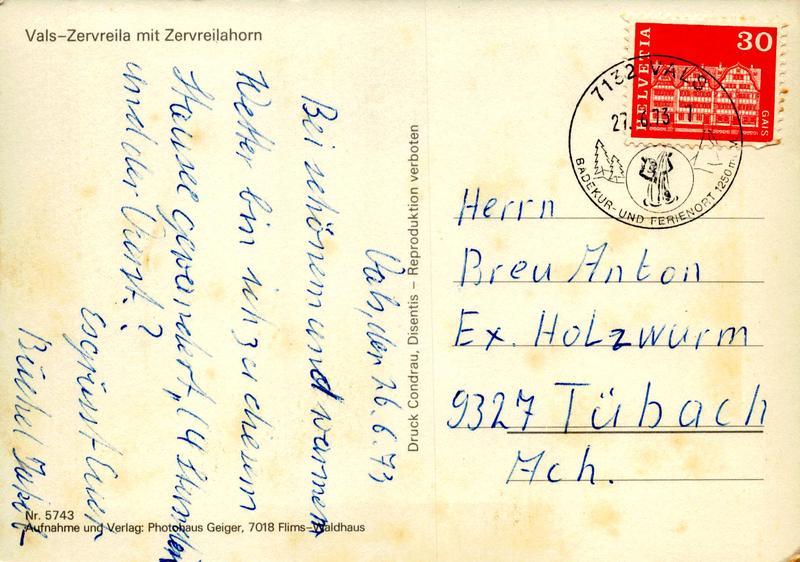 Vals-Zervreila mit Zervreilahorn
Vals, den 26.6.73
Bei schönem und warmem
Wetter bin ich zu einem
Stausee gewandert, (4 Stunden
und der Durst?
Es grüsst Euer
Büchel Jakob
Nr. 5743
Aufnahme und Verlag: Photohaus Geiger, 7018 Flims-Waldhaus
Druck Condrau, Disentis – Reproduktion verboten
HELVETIA
30
GAIS
7132 VALS
27.6.73
BADEKUR- UND FERIENORT 1250 m.ü.M.
Herrn
Breu Anton
Ex. Holzwurm
9327 Tübach
Ach.